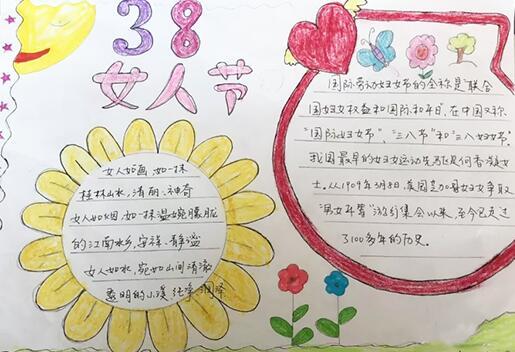 38
女人节
女人如画,如一抹
桂林山水,清丽、神奇
女人如烟,如一抹温婉朦胧
的江南水乡,安祥、静谧
女人如水,宛如山间清澈
透明的小溪 纯净 润泽
国际劳动妇女节的全称是"联合
国妇女权益和国际和平日,在中国又称
"国际妇女节"、"三八节"和"三八妇女节"。
我国最早的妇女运动先驱是何香凝女
士,从1909年3月8日,美国芝加哥妇女争取
"男女平等"游行集会以来,至今已走过
了100多年的历史。